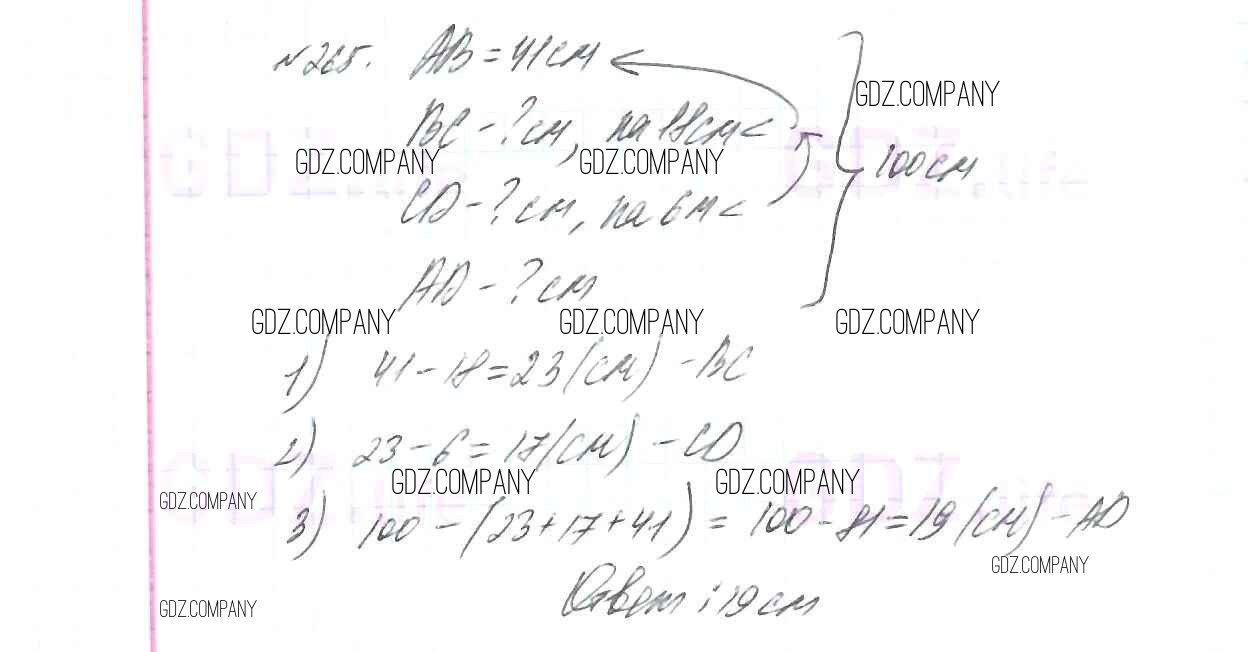 №265. AB = 41 см
GDZ.COMPANY
BC - ? см, на 18 см <
GDZ.COMPANY GDZ.COMPANY
100 см
CD - ? см, на 6 м <
AD - ? см
GDZ.COMPANY GDZ.COMPANY GDZ.COMPANY
1) 41 - 18 = 23 (см) - BC
2) 23 - 6 = 17 (см) - CD
GDZ.COMPANY GDZ.COMPANY GDZ.COMPANY
3) 100 - (23 + 17 + 41) = 100 - 81 = 19 (см) - AD
GDZ.COMPANY
Ответ: 19 см
GDZ.COMPANY